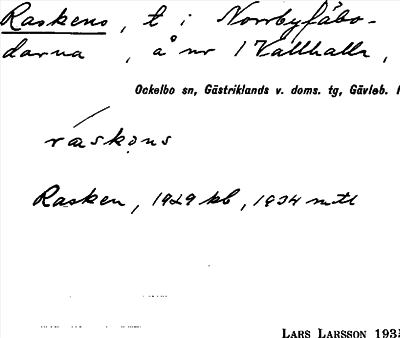 Raskens, t i Norrbyfäbo-
darna, å nr 1 Vallhalla,
Ockelbo sn, Gästriklands v. doms. tg, Gävleb.
raskens
Rasken, 1929 kb, 1934 mtl
LARS LARSSON 1935